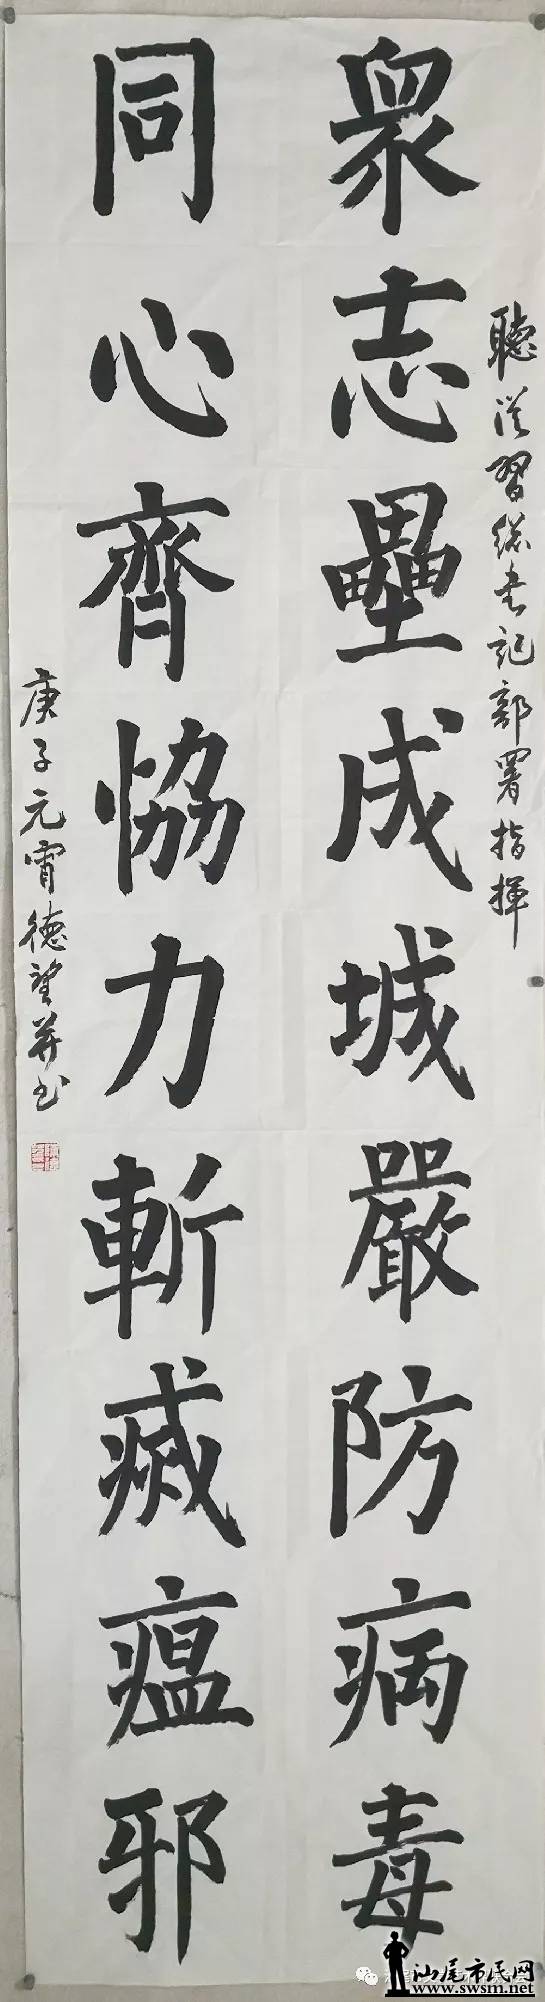 聽從習總書記部署指揮
眾志壘成城嚴防病毒
同心齊協力斬滅瘟邪
庚子元宵德望并书
汕尾市民网
www.swsm.net